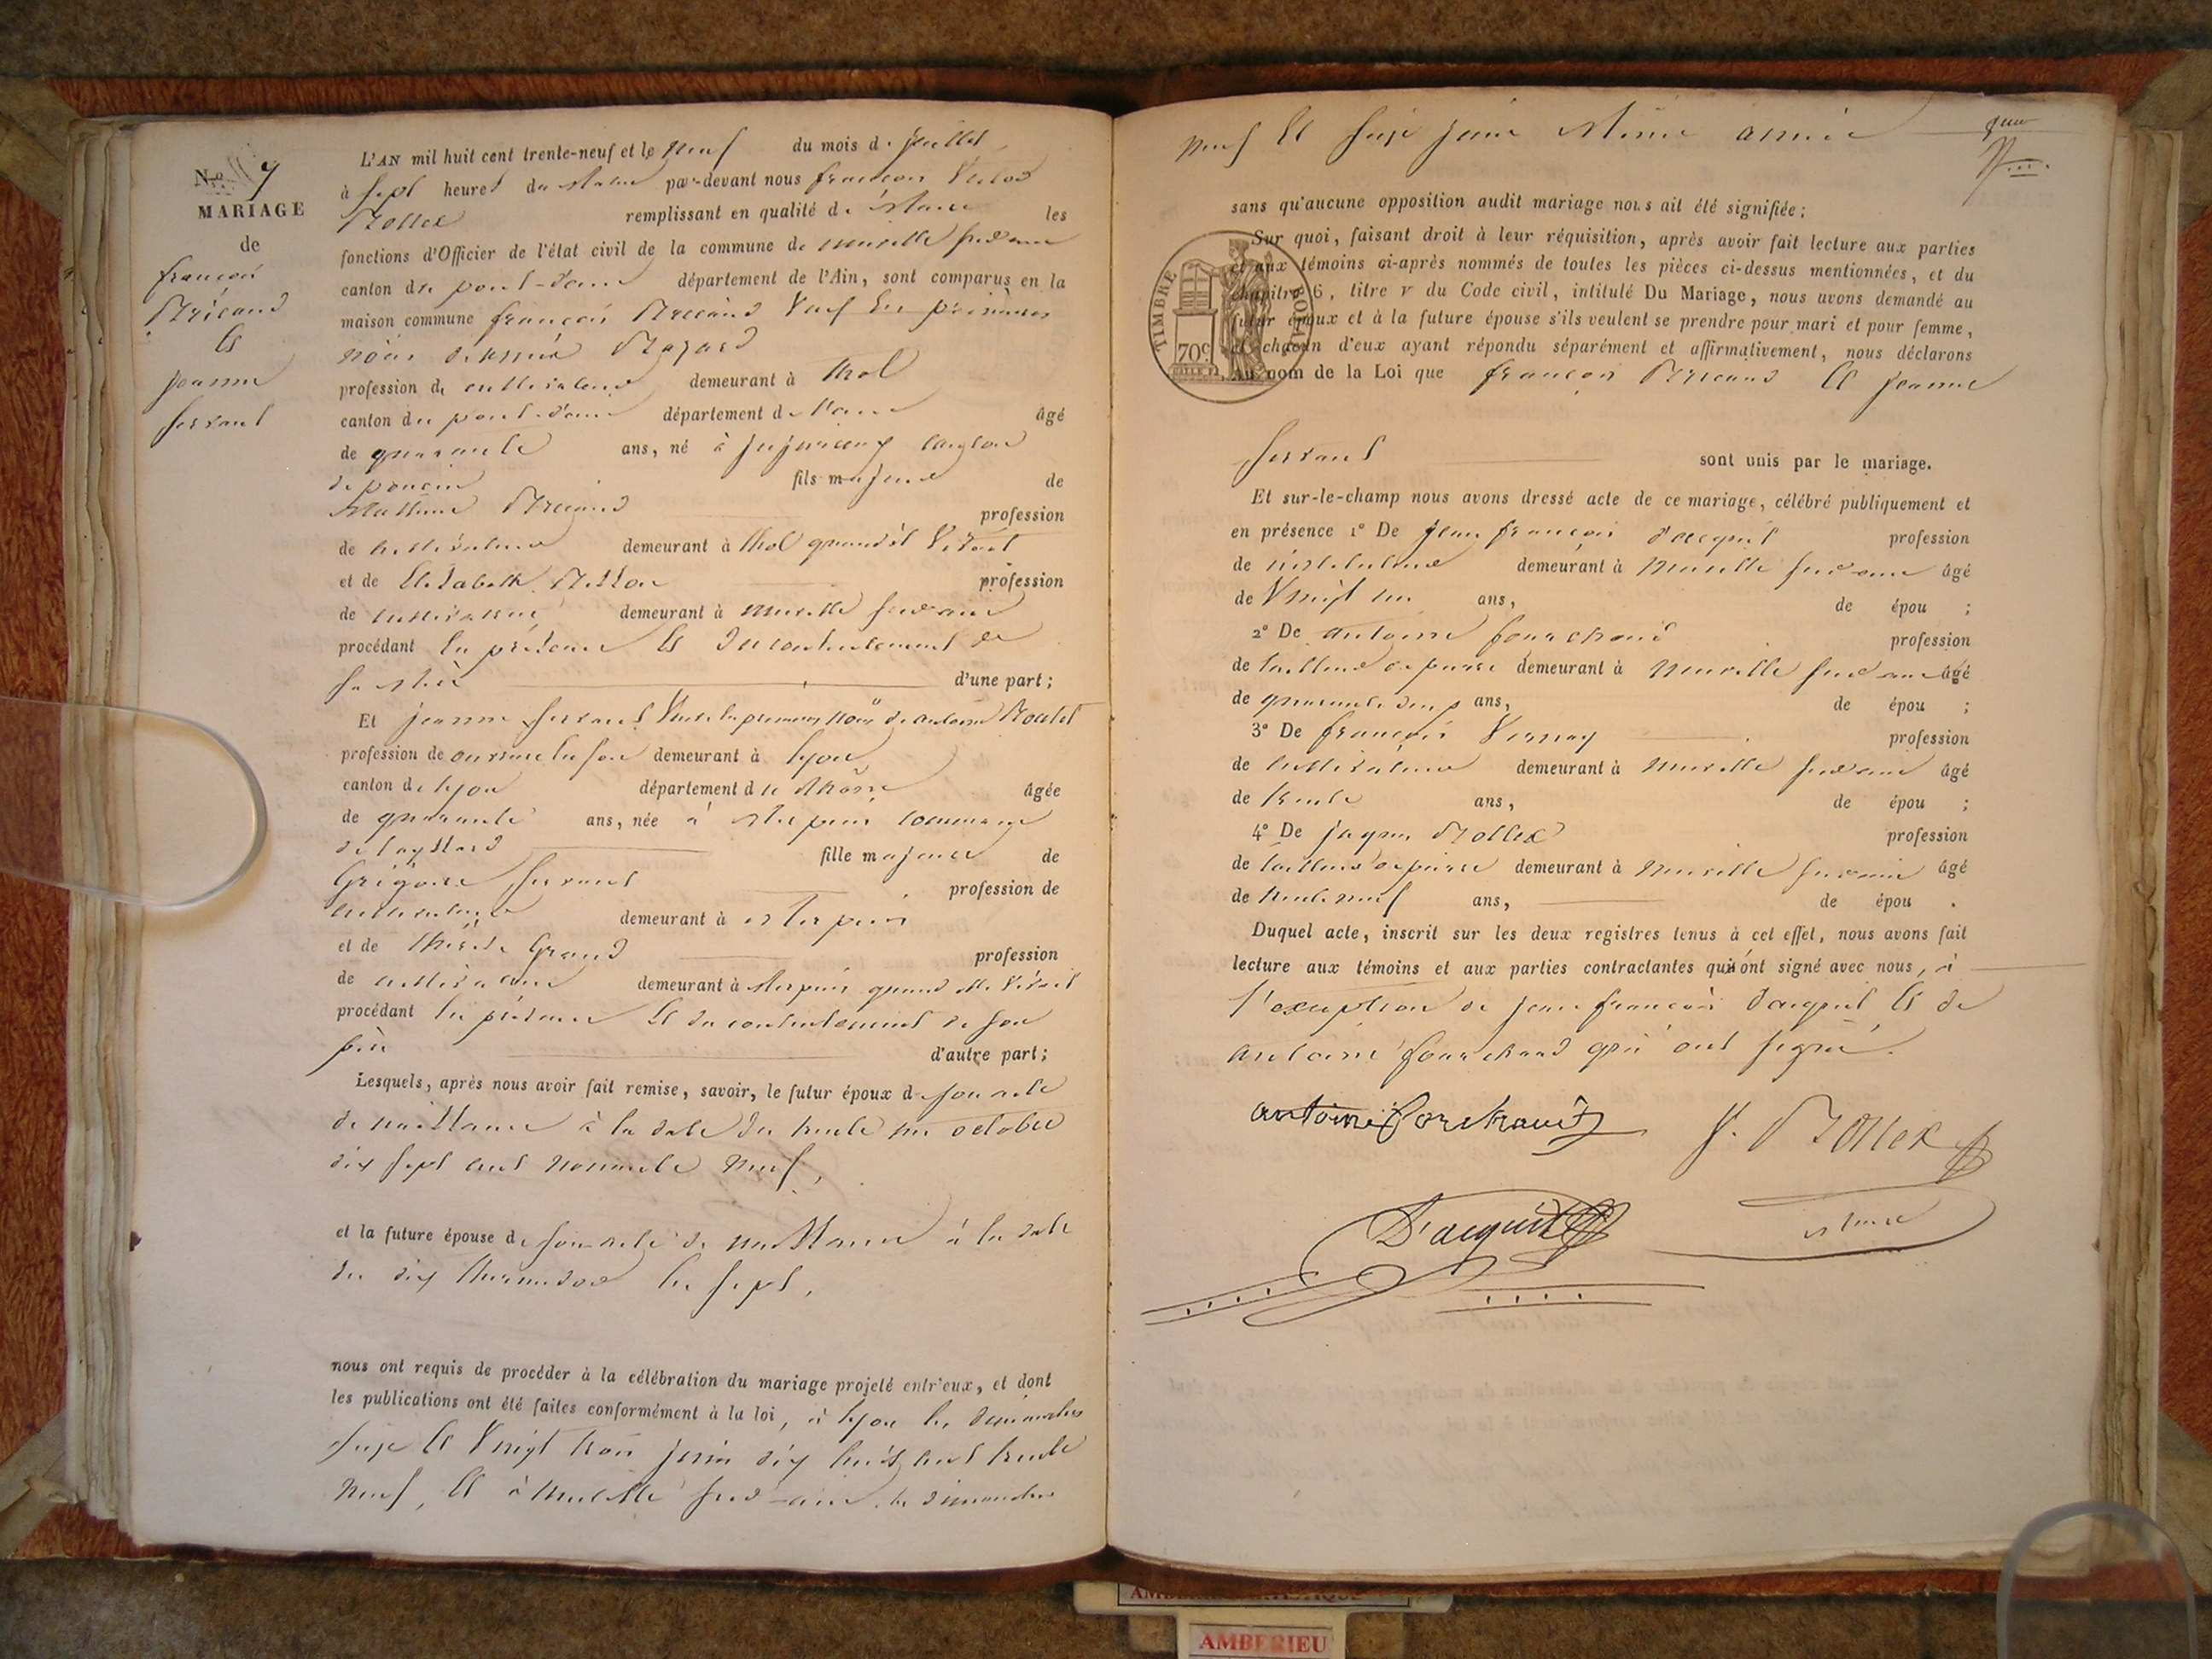 N.º 7
MARIAGE
de
françois
Bricaud
et
jeanne
serrant
L'AN mil huit cent trente-neuf et le neuf du mois de juillet
à sept heures du matin par-devant nous françois
Bollex remplissant en qualité de maire les
fonctions d'Officier de l'état civil de la commune de neuville sur ain
canton du pont-d'ain département de l'Ain, sont comparus en la
maison commune françois Bricaud veuf en premières
nôces
profession de cultivateur demeurant à thol
canton du pont-d'ain département de l'ain âgé
de quarante ans, né à jujurieux canton
de poncin fils majeur de
Bricaud profession
de cultivateur demeurant à thol quand il vivait
et de Elisabeth profession
de cultivatrice demeurant à neuville sur ain
procédant en présence et du consentement de
sa mère d'une part;
Et jeanne serrant veuve en premières nôces de antoine
profession de ouvrière en soie demeurant à lyon
canton de lyon département du Rhône âgée
de quarante ans, née à commune
de fille majeure de
Grégoire serrant profession de
cultivateur demeurant à
et de thérèse Grand profession
de cultivatrice demeurant à quand elle vivait
procédant en présence et du consentement de son
père d'autre part;
Lesquels, après nous avoir fait remise, savoir, le futur époux de son acte
de naissance à la date du trente un octobre
dix sept cent nonante neuf,
et la future épouse de son acte de naissance à la date
du dix thermidor an sept,
nous ont requis de procéder à la célébration du mariage projeté entr'eux, et dont
les publications ont été faites conformément à la loi, à lyon les dimanches
seize et vingt trois juin dix huit cent trente
neuf, et à neuville sur-ain les dimanches
neuf et seize juin même année
sans qu'aucune opposition audit mariage nous ait été signifiée;
Sur quoi, faisant droit à leur réquisition, après avoir fait lecture aux parties
et aux témoins ci-après nommés de toutes les pièces ci-dessus mentionnées, et du
chapitre 6, titre V du Code civil, intitulé Du Mariage, nous avons demandé au
futur époux et à la future épouse s'ils veulent se prendre pour mari et pour femme,
et chacun d'eux ayant répondu séparément et affirmativement, nous déclarons
au nom de la Loi que françois Bricaud et jeanne
TIMBRE ROYAL
70c
serrant sont unis par le mariage.
Et sur-le-champ nous avons dressé acte de ce mariage, célébré publiquement et
en présence 1º De jean françois d'acquit profession
de instituteur demeurant à neuville sur ain âgé
de vingt un ans, de épou ;
2º De antoine fourchaud profession
de tailleur de pierre demeurant à neuville sur ain âgé
de quarante cinq ans, de épou ;
3º De françois Vernay profession
de cultivateur demeurant à neuville sur ain âgé
de trente ans, de épou ;
4º De Bollex profession
de tailleur de pierre demeurant à neuville sur ain âgé
de trente neuf ans, de épou .
Duquel acte, inscrit sur les deux registres tenus à cet effet, nous avons fait
lecture aux témoins et aux parties contractantes qui ont signé avec nous, à
l'exception de jean françois d'acquit et de
antoine fourchaud qui ont signé.
antoine fourchaud
Bollex
D'acquit
maire
AMBERIEU